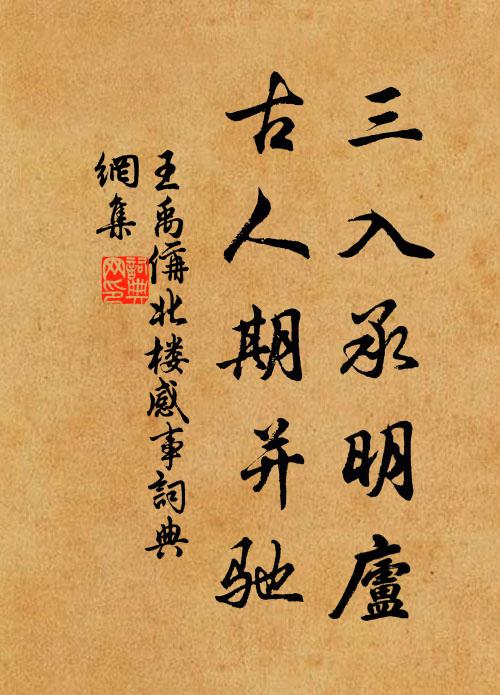 三入承明廬
古人期并驰
王禹偁北楼感事詞典
網集
詞典
网印